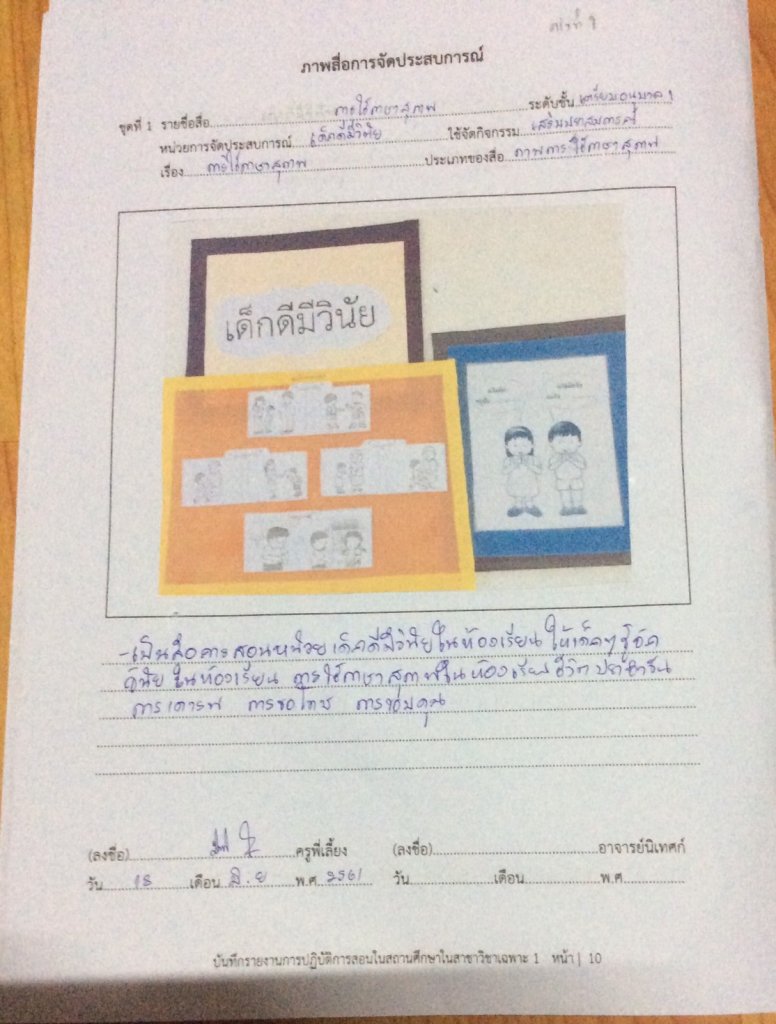 ครั้งที่ 1
ภาพสื่อการจัดประสบการณ์
ชุดที่ 1 รายชื่อสื่อ การใช้ภาษาสุภาพ ระดับชั้น เตรียมอนุบาล 1
หน่วยการจัดประสบการณ์ เด็กดีมีวินัย ใช้จัดกิจกรรม เสริมประสบการณ์
เรื่อง การใช้ภาษาสุภาพ ประเภทของสื่อ ภาพการใช้ภาษาสุภาพ
เด็กดีมีวินัย
-เป็นสื่อการสอนหน่วยเด็กดีมีวินัยในห้องเรียน ให้เด็กๆรู้จัก
วินัยในห้องเรียน การใช้ภาษาสุภาพในห้องเรียน ชีวิตประจำวัน
การเคารพ การขอโทษ การขอบคุณ
(ลงชื่อ) ครูพี่เลี้ยง (ลงชื่อ) อาจารย์นิเทศก์
วัน 18 เดือน มิ.ย พ.ศ 2561 วัน เดือน พ.ศ
บันทึกรายงานการปฏิบัติการสอนในสถานศึกษาในสาขาวิชาเฉพาะ 1 หน้า | 10